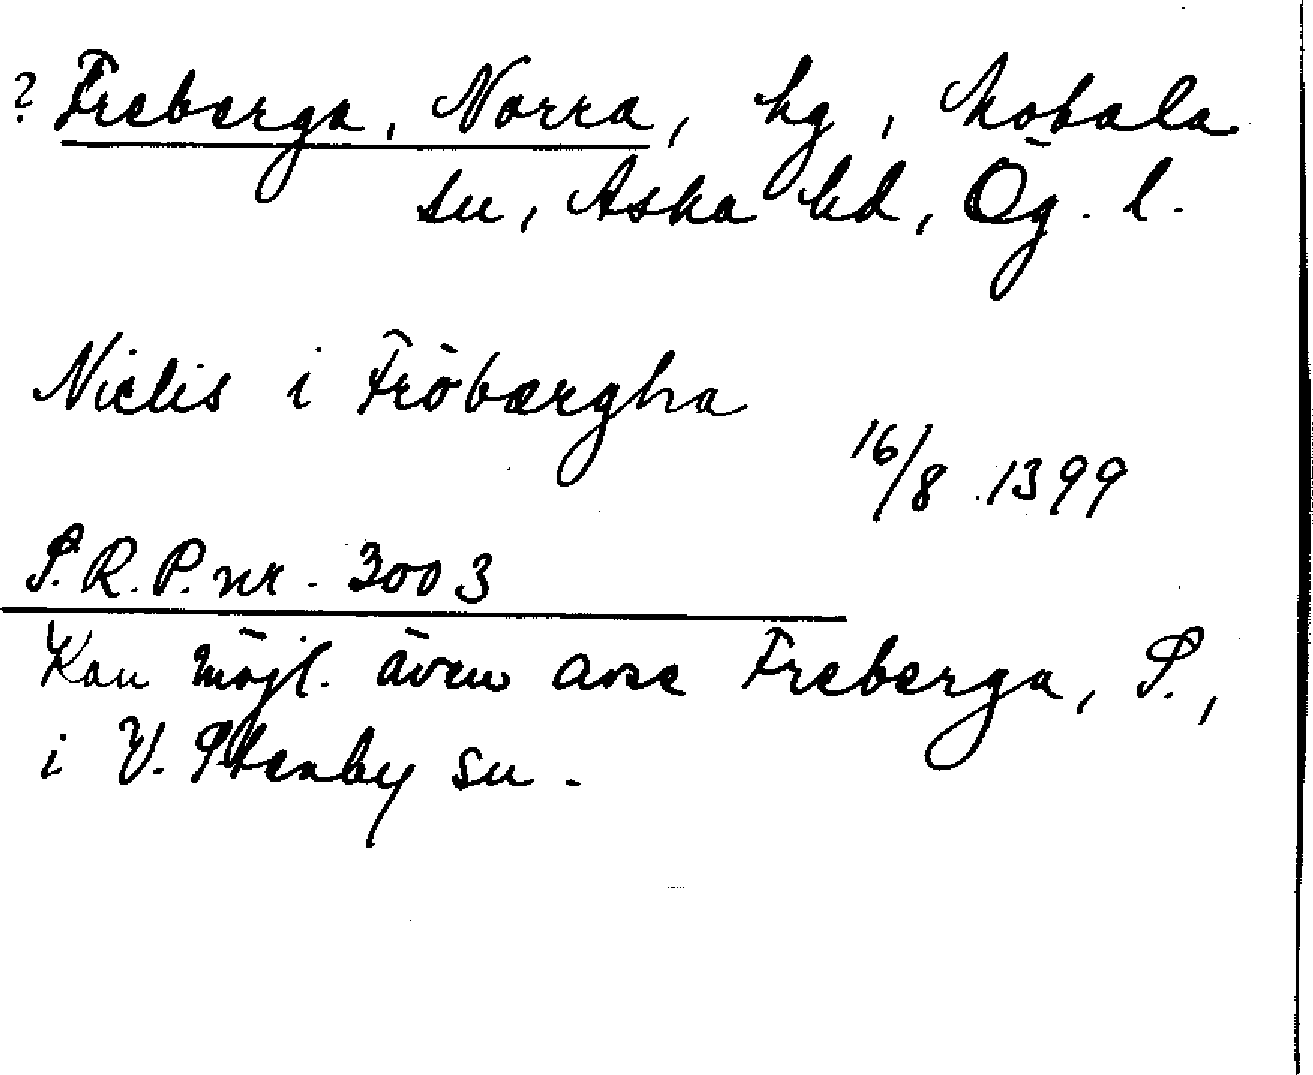 ? Freberga, Norra, hg, Motala
sn, Aska hd, Ög. l.
Niclis i Fröbærgha
16/8 1399
S.R.P. nr. 3003
Kan möjl. även avse Freberga, S.,
i V. Stenby sn.